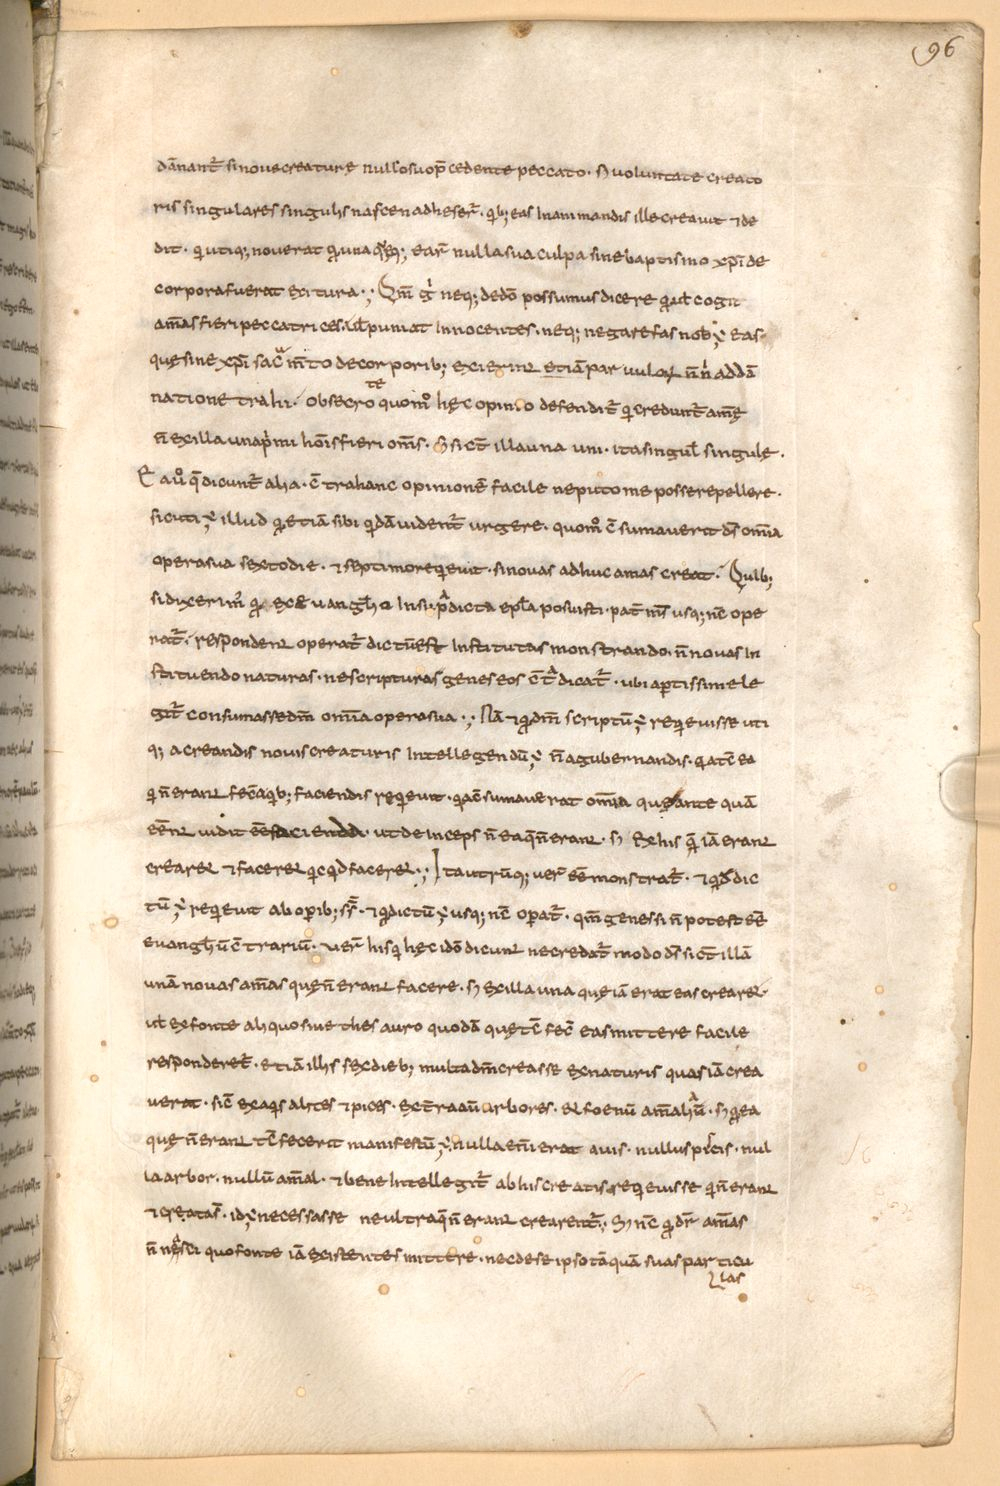 96
dānant̄ si noue creaturę nullo suo p̄cedente peccato · s; uoluntate creato
ris singulares singulis nascentib; adheser̄ · qib; eas Inanimandis ille creauit & de
dit · qi utiq; nouerat qd unaqęq; ear̄ nulla sua culpa sine baptismo xp̄i de
corpora fuerat exitura ·; Qm̄ ḡ neq; dedō possumus dicere qd ul cogit
am̄as fieri peccatrices · ul puniat Innocentes · neq; negare fas nob ÷ eas
quę sine xp̄i sac̄m̄to de corporib; exierint etiā paruulor̄ n̄ nī ad dā
natione trahi · obsecro te quom̊ hęc opinio defendit̄ qi credunt̄ am̄ę
n̄ ex illa una primi hoīs fieri om̄s · s; sic̄ illa una uni · ita singul singulę ·
Ea ū q̄ dicunt̄ alia · c̄tra hanc opinionē facile neputo me posse repellere ·
sicuti ÷ illud qd etiā sibi qdā uident̄ urgere · quom̊ c̄sumauerit ds̄ om̄ia
opera sua sexto die · & septimo reqieuit · si nouas adhuc am̄as creat · Quib;
si dixerim̄ qd ex euanghłio In sup̄dicta epl̄a posuisti · pat̄ m̄s usq; nc̄ ope
rat̄ · respondent operat̄ dictū est Institutas monstrando · n̄ nouas In
stituendo naturas · ne scripturas geneseos c̄tdicat̄ · ubi aptissime le
git̄ consumasse dm̄ omnia opera sua ·; Nā & qd m̄ scriptū ÷ reqieuisse uti
q; a creandis nouis creaturis Intellegendū ÷ n̄ a gubernandis · qia tc̄ ea
q̄ n̄ erant fec̄ a qib; faciendis reqieuit · qia c̄sumauerat omnia quę ante quā
eēnt uidit eē facienda · ut deinceps n̄ ea q̄ n̄ erant · s; ex his q̄ iā erant
crearet & faceret qicqid faceret ·; Ita utrūq; uer̄ eē monstrat̄ · & qd dic
tū ÷ reqieuit ab opib; s̄s · & qd dictū ÷ usq; nc̄ opat̄ · qm̄ genesi n̄ potest eē
euangh̄ū c̄trariū · Uer̄ his qi hęc idō dicunt ne credat̄ modo ds̄ sic̄ illā
unā nouas am̄as quę n̄ erant facere · s; ex illa una quę iā erat eas creare ·
ut ex fonte aliquo siue thesauro quodā quę tc̄ fec̄ eas mittere facile
responderet̄ · etiā illis sex dieb; multa dm̄ creasse ex naturis quas iā crea
uerat · sic̄ ex aqis alites & pices · ex t̄ra aū arbores · et foenū am̄alīa · s; qd ea
quę n̄ erant tc̄ fecerit manifestū ÷ nulla enī erat auis · nullus piscis · nul
la arbor · nullū am̄al · & bene Intellegit̄ ab his creatis reqieuisse q̄ n̄ erant
& creata s̄ · id ÷ necessasse ne ultra q̄ n̄ erant crearent̄ ·; S; nc̄ qd dr̄ am̄as
n̄ nęsci quo fonte iā existentes mittere · nec de se ipso tāquā suas particu
las